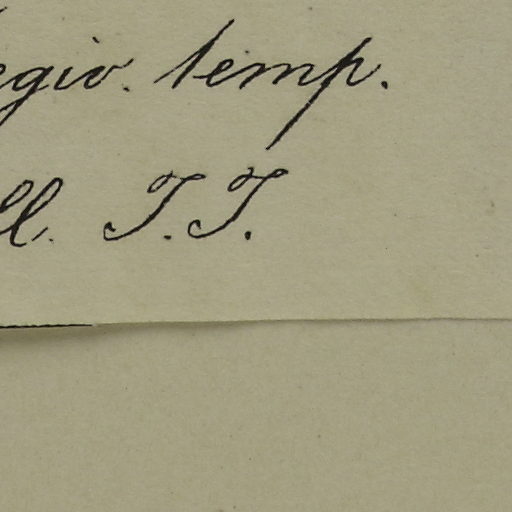 egio. temp.
ll. T. T.